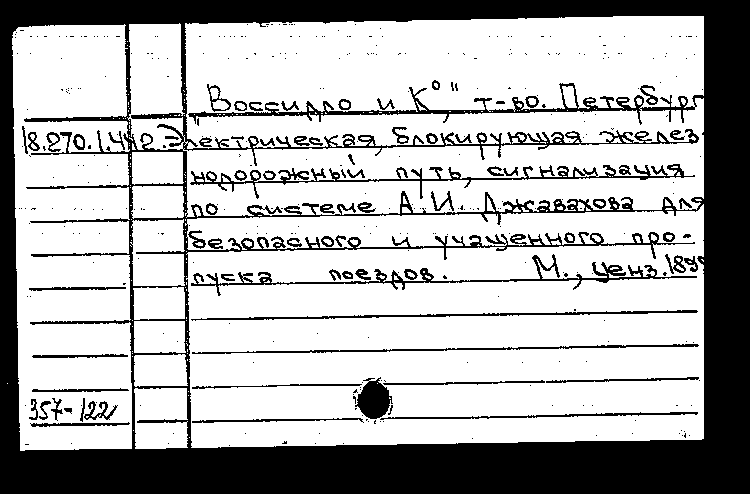 "Воссидло и К°", т-во. Петербург
18.270.1.442. Электрическая, блокирующая желез-
нодорожный путь, сигнализация
по системе А.И. Джавахова для
безопасного и учащенного про-
пуска поездов. М., ценз. 1899
357-122